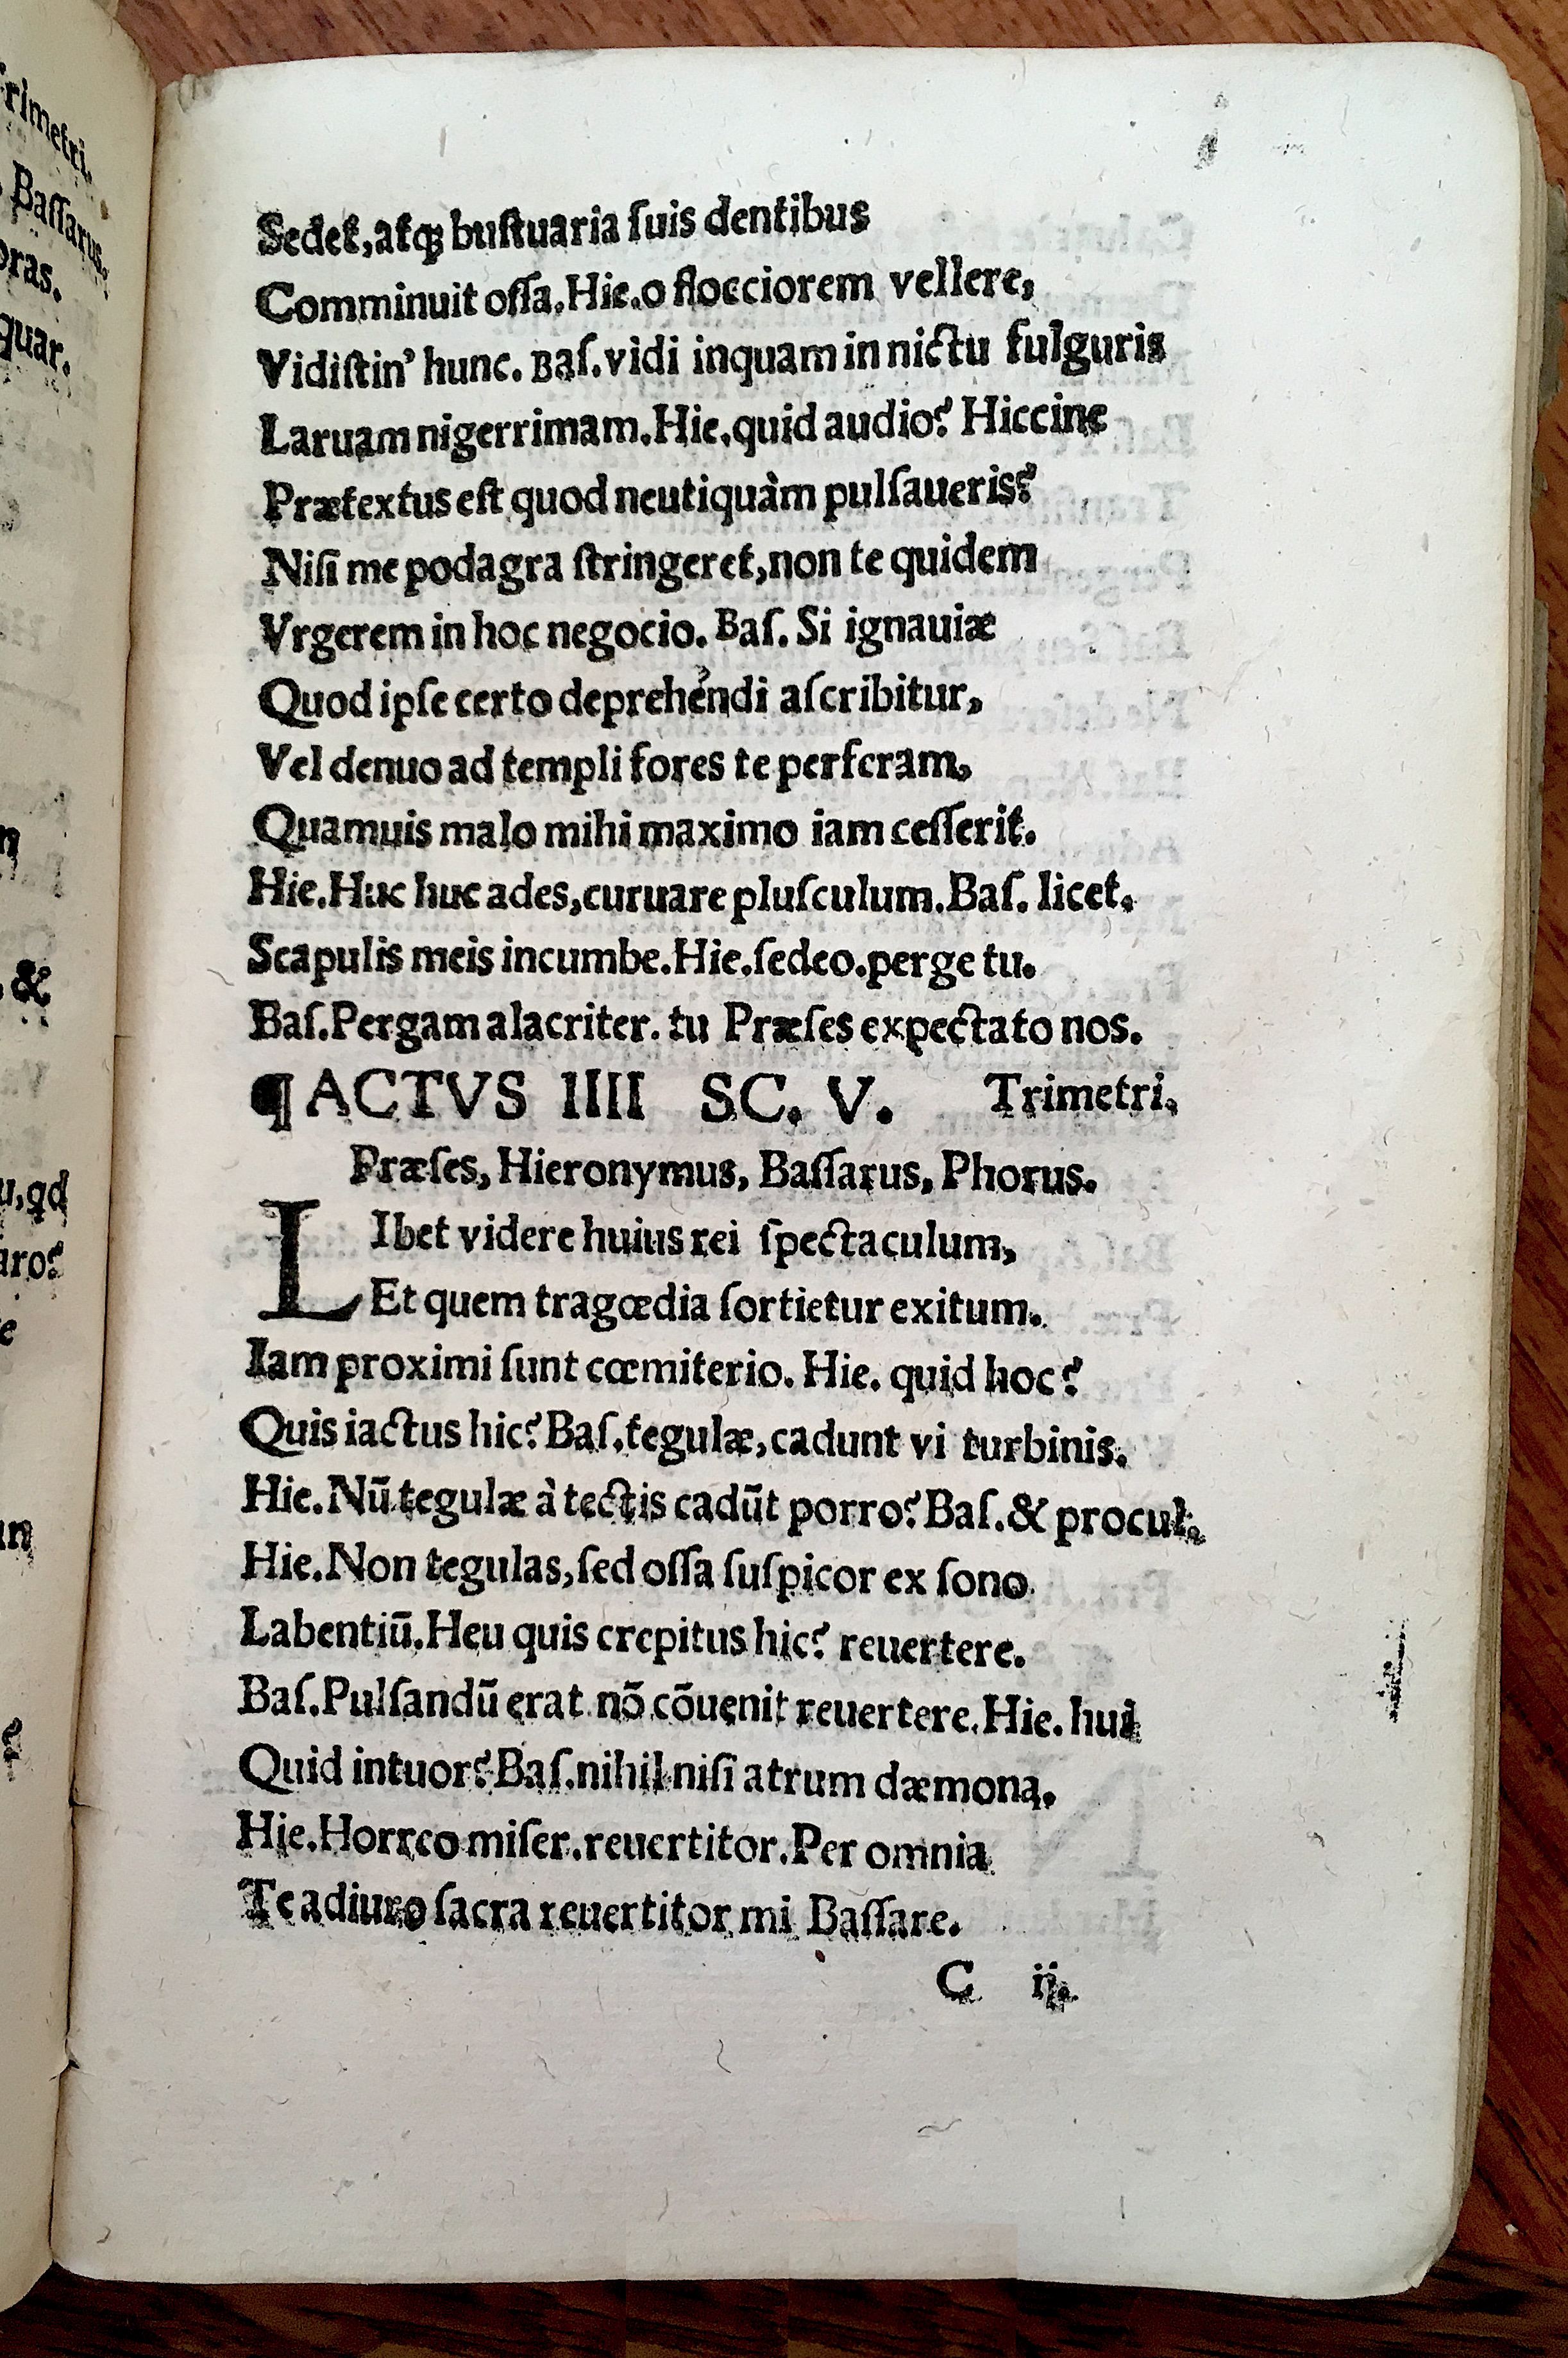 Sedet, atqꝫ bustuaria suis dentibus
Comminuit ossa. Hie. o flocciorem vellere,
Vidistin' hunc. Bas. vidi inquam in nictu fulguris
Laruam nigerrimam. Hie. quid audio? Hiccine
Prætextus est quod neutiquàm pulsaueris?
Nisi me podagra stringeret, non te quidem
Vrgerem in hoc negocio. Bas. Si ignauiæ
Quod ipse certo deprehéndi ascribitur,
Vel denuo ad templi fores te perferam,
Quamuis malo mihi maximo iam cesserit.
Hie. Huc huc ades, curuare plusculum. Bas. licet.
Scapulis meis incumbe. Hie. sedeo. perge tu.
Bas. Pergam alacriter. tu Præses expectato nos.
¶ ACTVS IIII SC. V. Trimetri.
Præses, Hieronymus, Bassarus, Phorus.
LIbet videre huius rei spectaculum,
Et quem tragœdia sortietur exitum.
Iam proximi sunt cœmiterio. Hie. quid hoc?
Quis iactus hic? Bas. tegulæ, cadunt vi turbinis.
Hie. Nū tegulæ à tectis cadūt porro? Bas. & procul.
Hie. Non tegulas, sed ossa suspicor ex sono
Labentiū. Heu quis crepitus hic? reuertere.
Bas. Pulsandū erat nō cōuenit reuertere. Hie. hui
Quid intuor? Bas. nihil nisi atrum dæmona.
Hie. Horreo miser. reuertitor. Per omnia
Te adiuro sacra reuertitor mi Bassare.
C ij.
rimetri.
Bassarus.
oras.
quar.
n
. &
u, qd
aro?
e
in
?